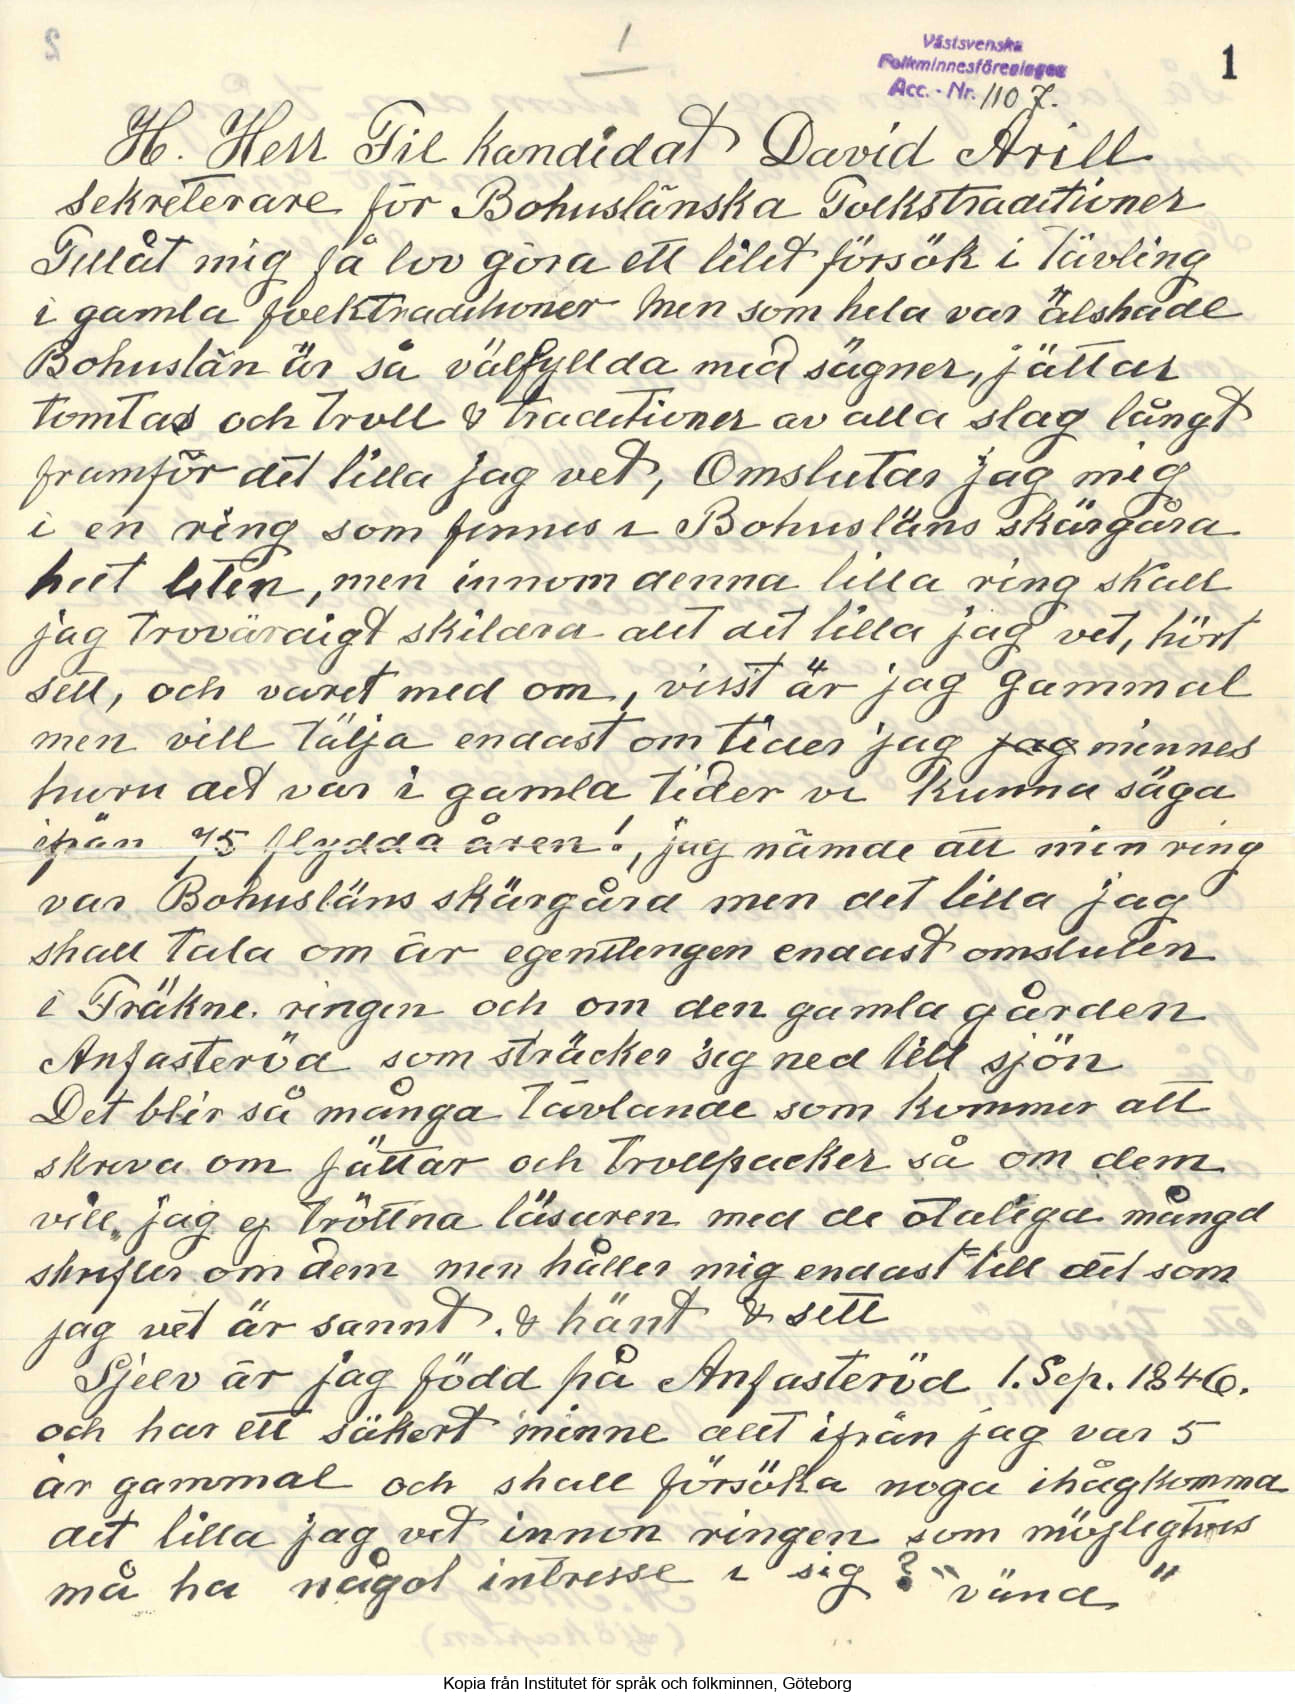 1
Västsvenska
Folkminnesföreningen
Acc. - Nr. 1107.
1
H. Herr Fil kandidat David Arill
sekreterare för Bohuslänska Folkstraditioner
Tillåt mig få lov göra ett litet försök i tävling
i gamla folktraditioner men som hela vår älskade
Bohuslän är så välfyllda med sägner, jättar
tomtar och troll & traditioner av alla slag långt
framför det lilla jag vet, Omslutar jag mig
i en ring som finnes i Bohusläns skärgård
helt liten, men innom denna lilla ring skall
jag trovärdigt skildra allt det lilla jag vet, hört
sett, och varet med om, visst är jag gammal
men vill tälja endast om tider jag jag minnes
huru det var i gamla tider vi kunna säga
ifrån 75 flydda åren!, jag nämde att min ring
var Bohusläns skärgård men det lilla jag
skall tala om är egentlingen endast omsluten
i Träkne. ringen och om den gamla gården
Anfasteröd som sträcker sig ned till sjön
Det blir så många tävlande som kommer att
skriva om jättar och trollpacker så om dem
vill jag ej tröttna läsaren med de otaliga mängd
skrifter om dem men håller mig endast till det som
jag vet är sannt. & hänt & sett
Sjelv är jag född på Anfasteröd 1. Sep. 1846.
och har ett säkert minne allt ifrån jag var 5
år gammal och skall försöka noga ihågkomma
det lilla jag vet innon ringen som möjligtvis
må ha något intresse i sig ? "vänd"
Kopia från Institutet för språk och folkminnen, Göteborg